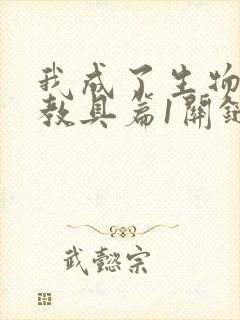 我成了生物
教具篇1開
武懿宗